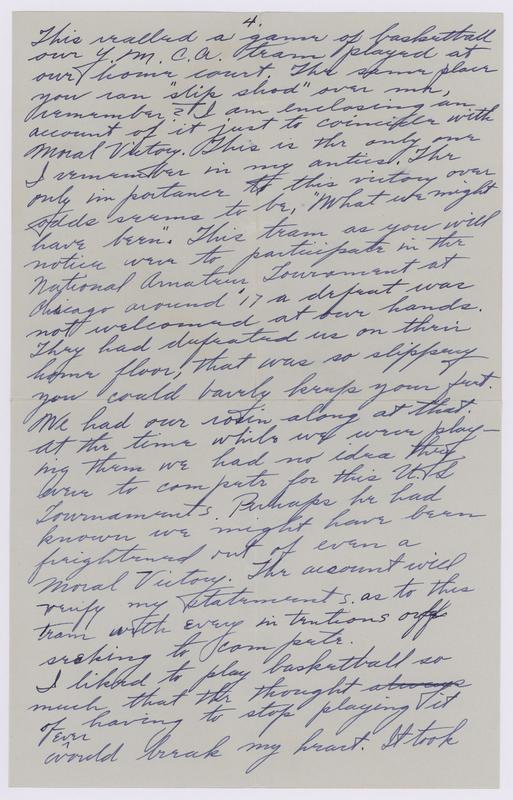 4.
This realled a game of basketball
our Y. M. C. A. team played at
our home court. The same place
you ran "slip shod" over me,
remember? I am enclosing an
account of it just to coincide with
Moral Victory. This is the only one
I remember in my antics. The
only importance to this victory over
odds seems to be, "What we might
have been". This team as you will
notice were to participate in the
National Amateur Tournament at
Chicago around '17 a defeat was
not welcomed at our hands.
They had defeated us on their
home floor, that was so slippery
you could barely keep your feet.
We had our rosin along at that
at the time while we were play-
ing them we had no idea they
were to compete for this U.S
Tournaments. Perhaps he had
known we might have been
frightened out of even a
Moral Victory. The account will
verify my statements. as to this
team with every intentions off
seeking to compete.
I liked to play basketball so
much, that the thought always
of having to stop playing it
ever
would break my heart. It took